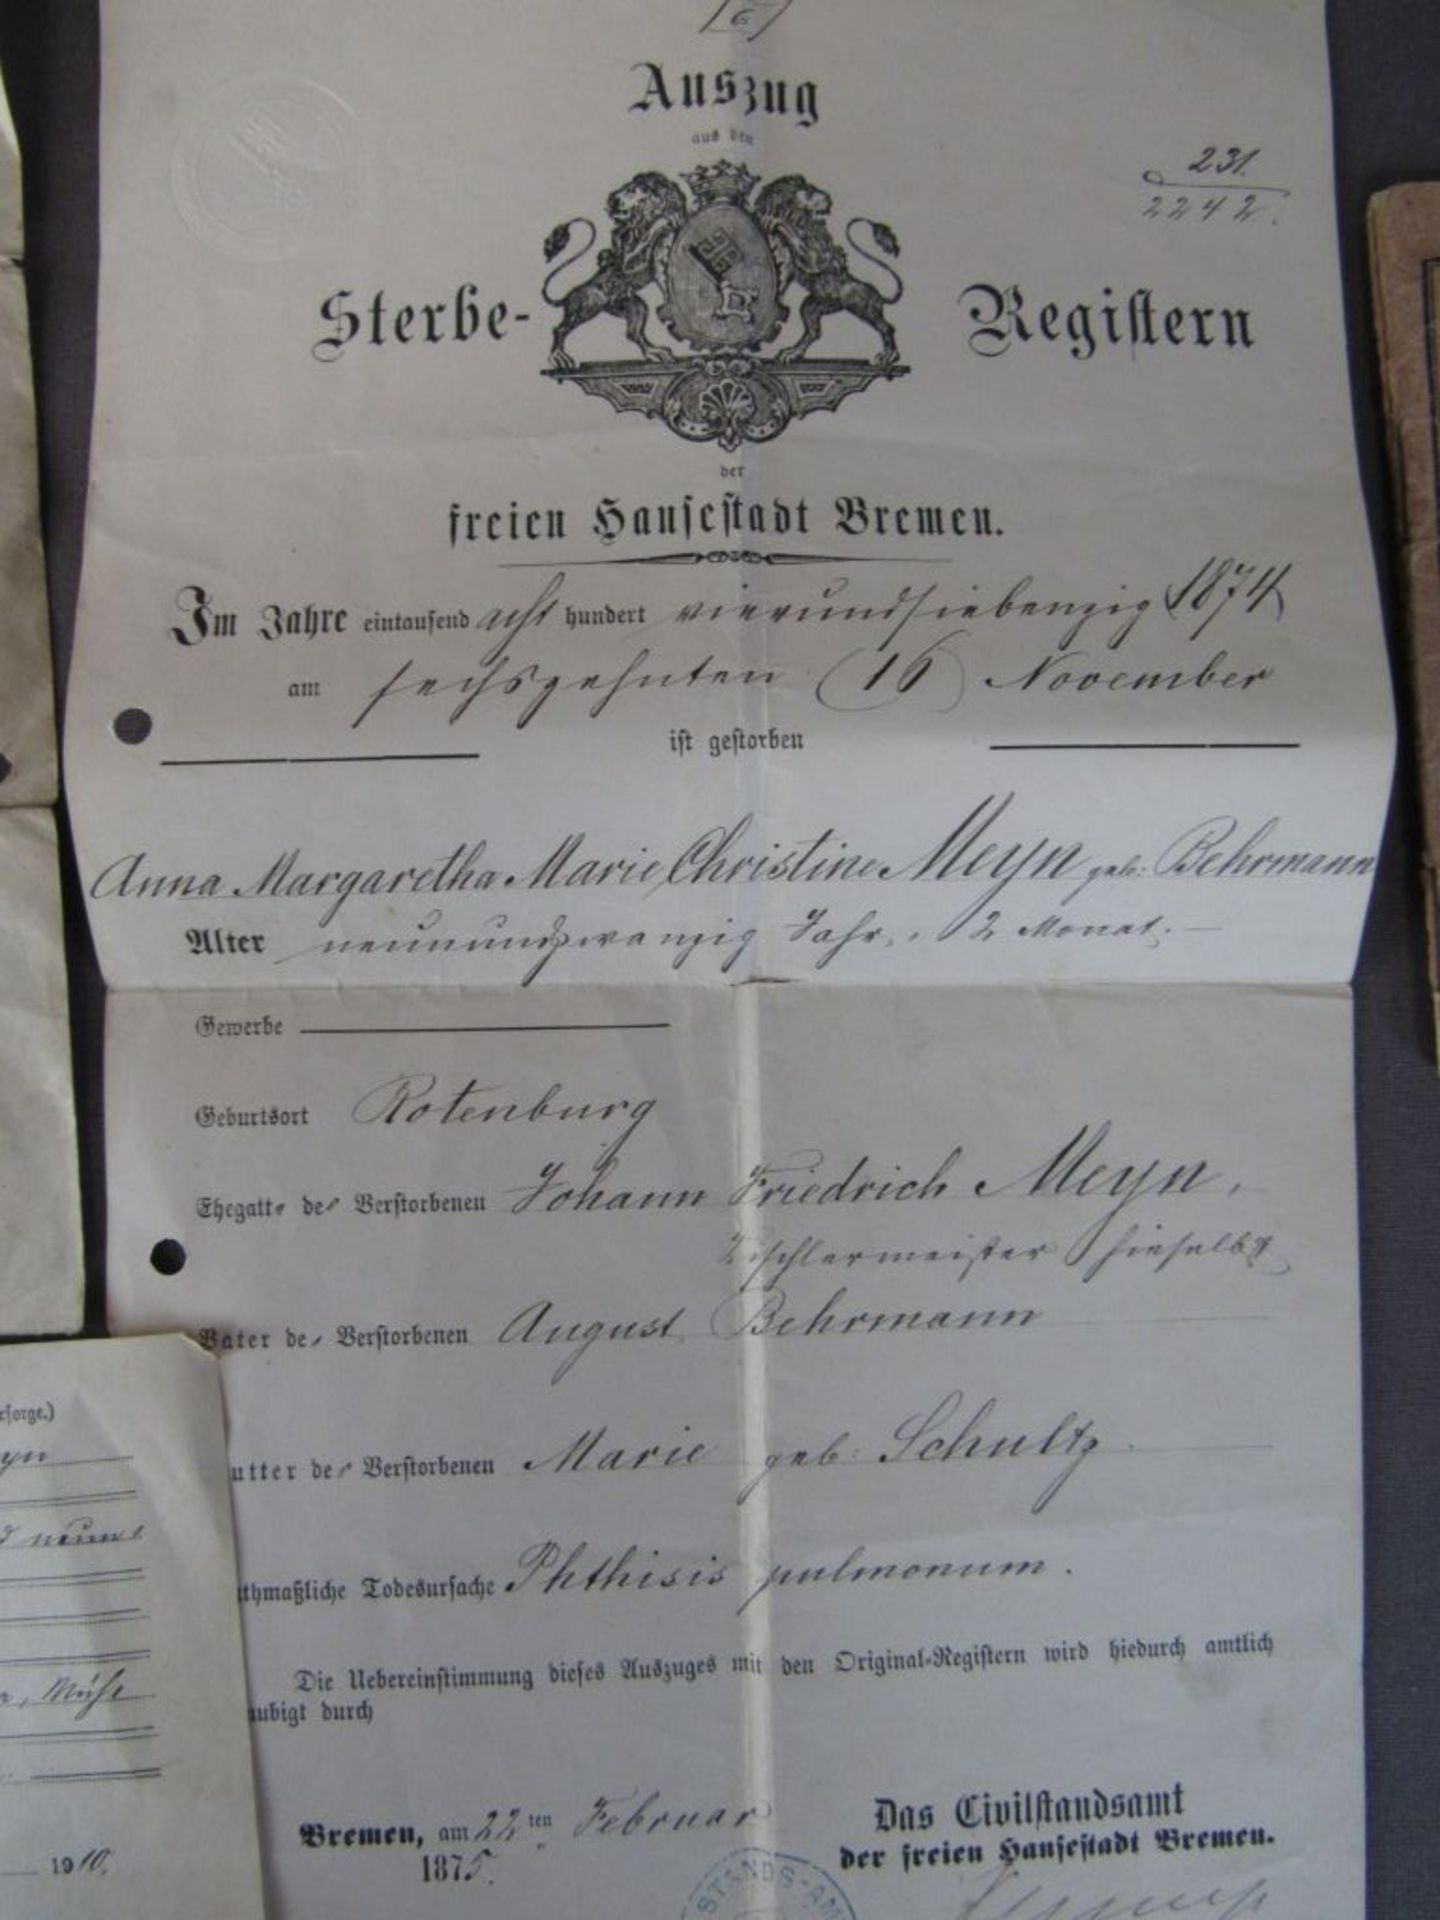 6
Auszug
aus den
231.
2242.
Sterbe- Registern
der
freien Hansestadt Bremen.
Im Jahre eintausend acht hundert vierundsiebenzig (1874)
am sechszehnten (16) November
ist gestorben
Anna Margaretha Marie Christine Meyn geb: Behrmann
Alter neunundzwanzig Jahr, 2 Monat.
Gewerbe
Geburtsort Rotenburg
Ehegatte der Verstorbenen Johann Friedrich Meyn,
Tischlermeister hieselbst
Vater der Verstorbenen August Behrmann
utter der Verstorbenen Marie geb: Schultz
thmaßliche Todesursache Phthisis pulmonum.
Die Uebereinstimmung dieses Auszuges mit den Original-Registern wird hiedurch amtlich
aubigt durch
Bremen, am 22ten Februar
1875.
Das Civilstandsamt
der freien Hansestadt Bremen.
STANDS-AM
rsorge.)
yn
1910.